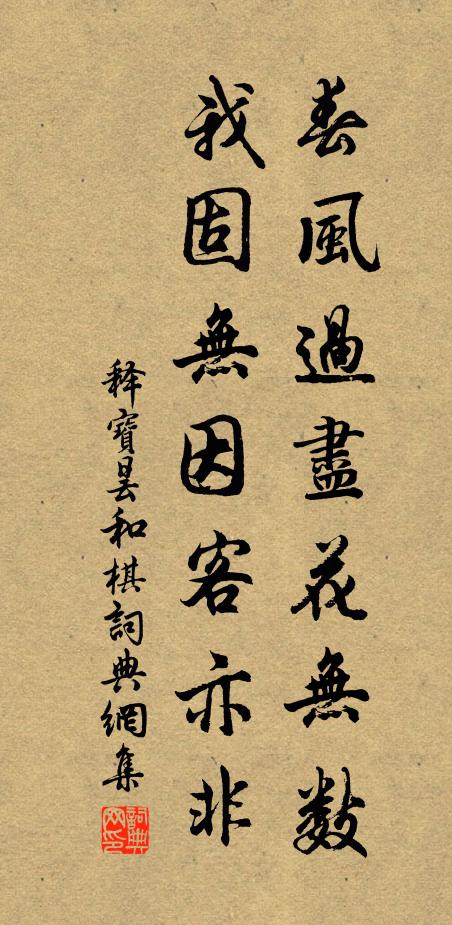 春風過盡花無數
我固無因客亦非
释寶曇和棋詞典網集
詞典网印